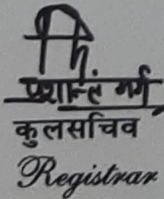 प्रशान्त गर्ग
कुलसचिव
Registrar